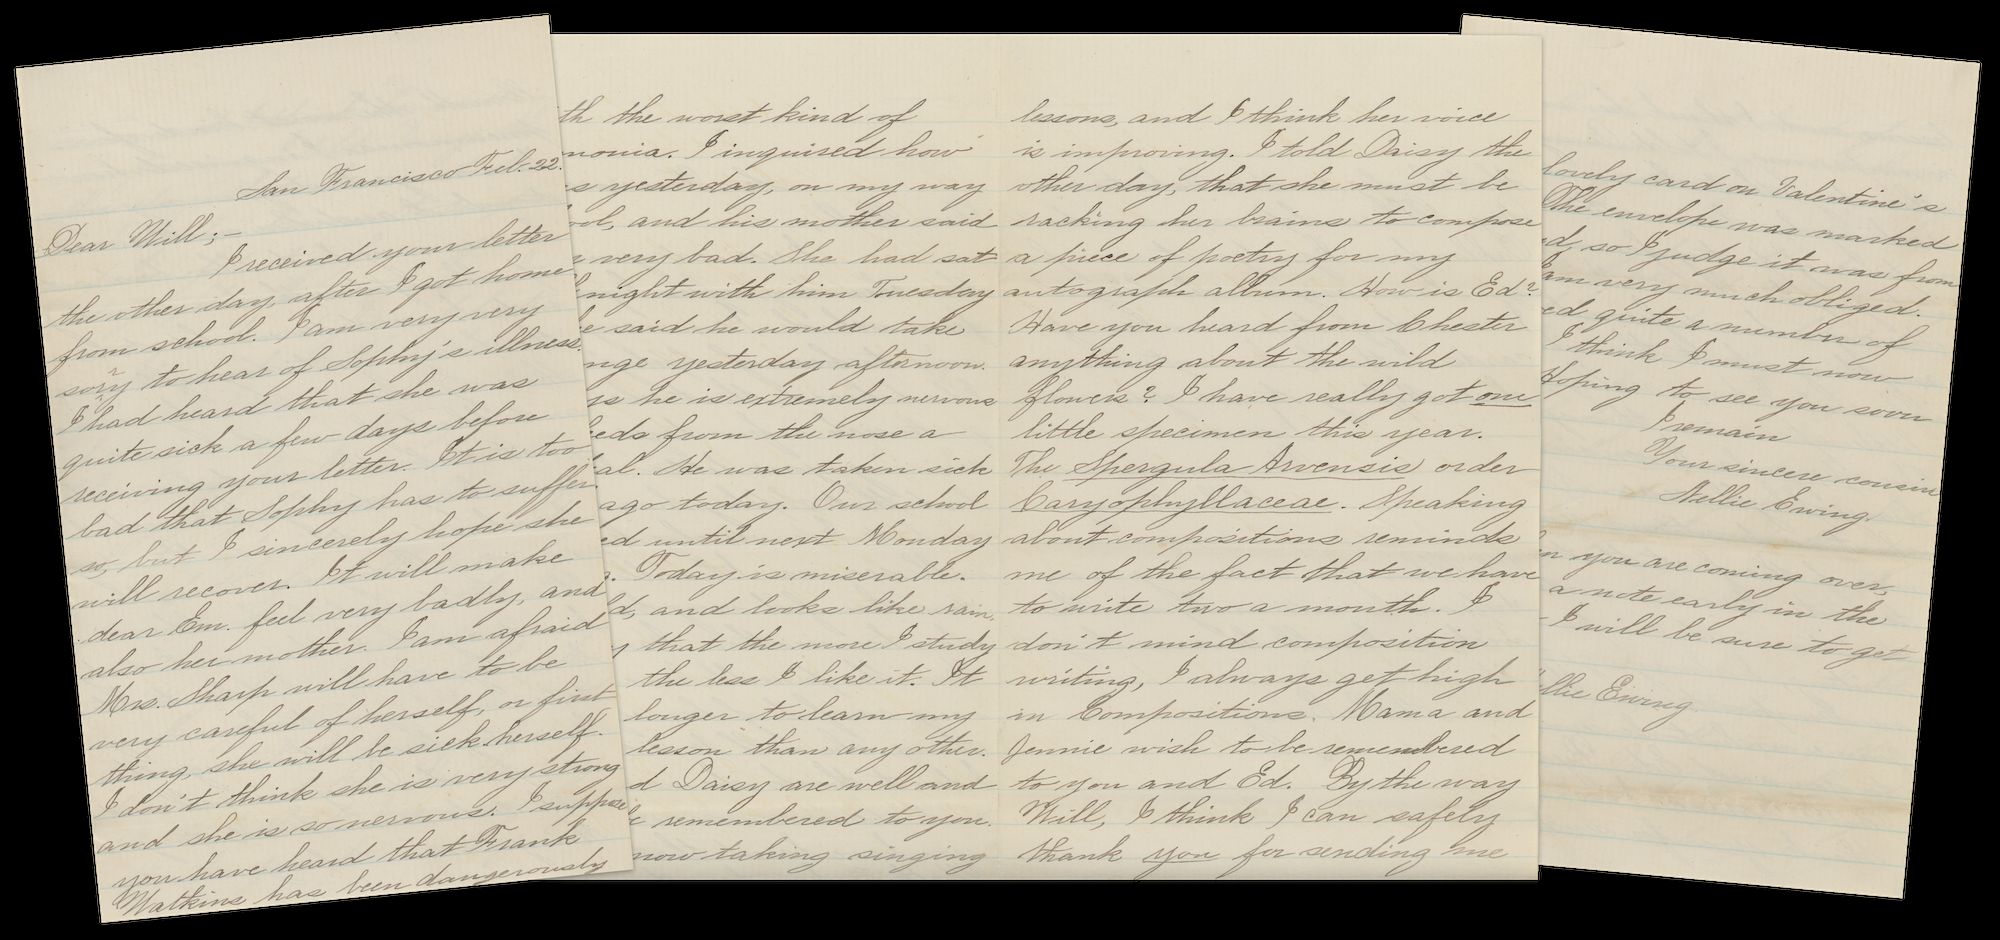 San Francisco Feb. 22.
Dear Will;-
I received your letter
the other day, after I got home
from school. I am very very
sory to hear of Sophy's illness.
r
I had heard that she was
quite sick a few days before
receiving your letter. It is too
bad that Sophy has to suffer
so, but I sincerely hope she
will recover. It will make
dear Em. feel very badly, and
also her mother. I am afraid
Mrs. Sharp will have to be
very careful of herself, or first
thing, she will be sick herself.
I don't think she is very strong
and she is so nervous. I suppose
you have heard that Frank
Watkins has been dangerously
th the worst kind of
monia. I inquired how
s yesterday, on my way
ool, and his mother said
very bad. She had sat
night with him Tuesday
e said he would take
nge yesterday afternoon.
s he is extremely nervous
eeds from the nose a
al. He was taken sick
ago today. Our school
ed until next Monday
. Today is miserable.
d, and looks like rain.
y that the more I study
the less I like it. It
longer to learn my
lesson than any other.
d Daisy are well and
e remembered to you.
now taking singing
lessons, and I think her voice
is improving. I told Daisy the
other day, that she must be
racking her brains to compose
a piece of poetry for my
autograph album. How is Ed?
Have you heard from Chester
anything about the wild
flowers? I have really got one
little specimen this year.
The Spergula Arvensis order
Caryophyllaceae. Speaking
about compositions reminds
me of the fact that we have
to write two a month. I
don't mind composition
writing, I always get high
in Compositions. Mama and
Jennie wish to be remembered
to you and Ed. By the way
Will, I think I can safely
thank you for sending me
lovely card on Valentine's
The envelope was marked
d, so I judge it was from
am very much obliged.
ed quite a number of
I think I must now
Hoping to see you soon
I remain
Your sincere cousin
Nellie Ewing.
n you are coming over,
a note early in the
I will be sure to get
llie Ewing.